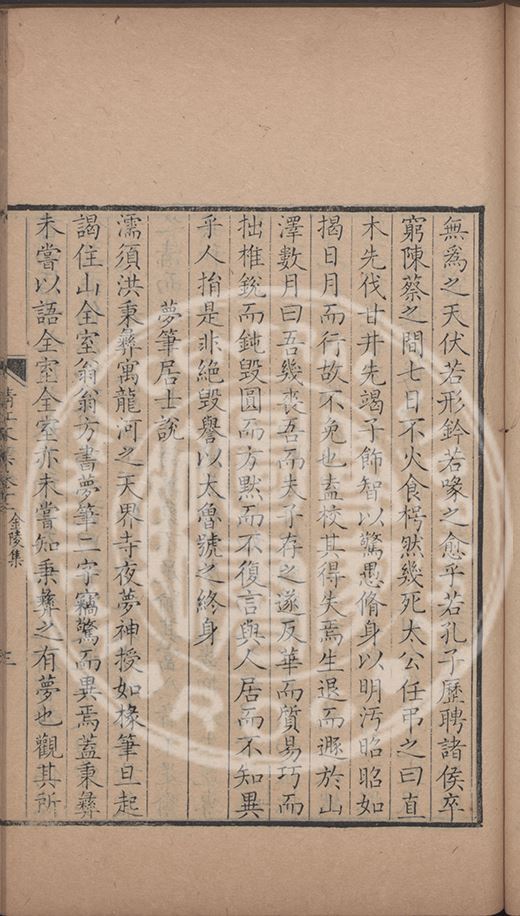 無爲之天伏若形鈐若喙之愈乎若孔子歷聘諸侯卒
窮陳蔡之間七日不火食枵然幾死太公任弔之曰直
木先伐甘井先竭子飾智以驚愚脩身以明汚昭昭如
揭日月而行故不免也盍校其得失焉生退而遯於山
澤數月曰吾幾喪吾而夫子存之遂反華而質易巧而
拙椎銳而鈍毀圓而方黙而不復言與人居而不知異
乎人揃是非絕毀譽以太魯號之終身
夢筆居士說
濡須洪秉彝寓龍河之天界寺夜夢神授如椽筆旦起
謁住山全室翁翁方書夢筆二字竊驚而異焉蓋秉彝
未嘗以語全室全室亦未嘗知秉彝之有夢也觀其所
清江 集卷 金陵集